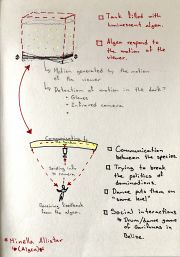 Tank filled with
luminescent algae.
Algae respond to
the motion of the
viewer.
Motion generated by the motion
of the viewer
Detection of motion in the dark?
Gloves
Infrared camera
Communicating to
Sending info
Receiving feedback
from the algae.
Communication
between the species
Trying to break
the politics of
dominations.
Dance puts them on
"same level"
Social interactions
Drum/dance game
of Garifunas in
Belize.
Minella Allister
(Algae)